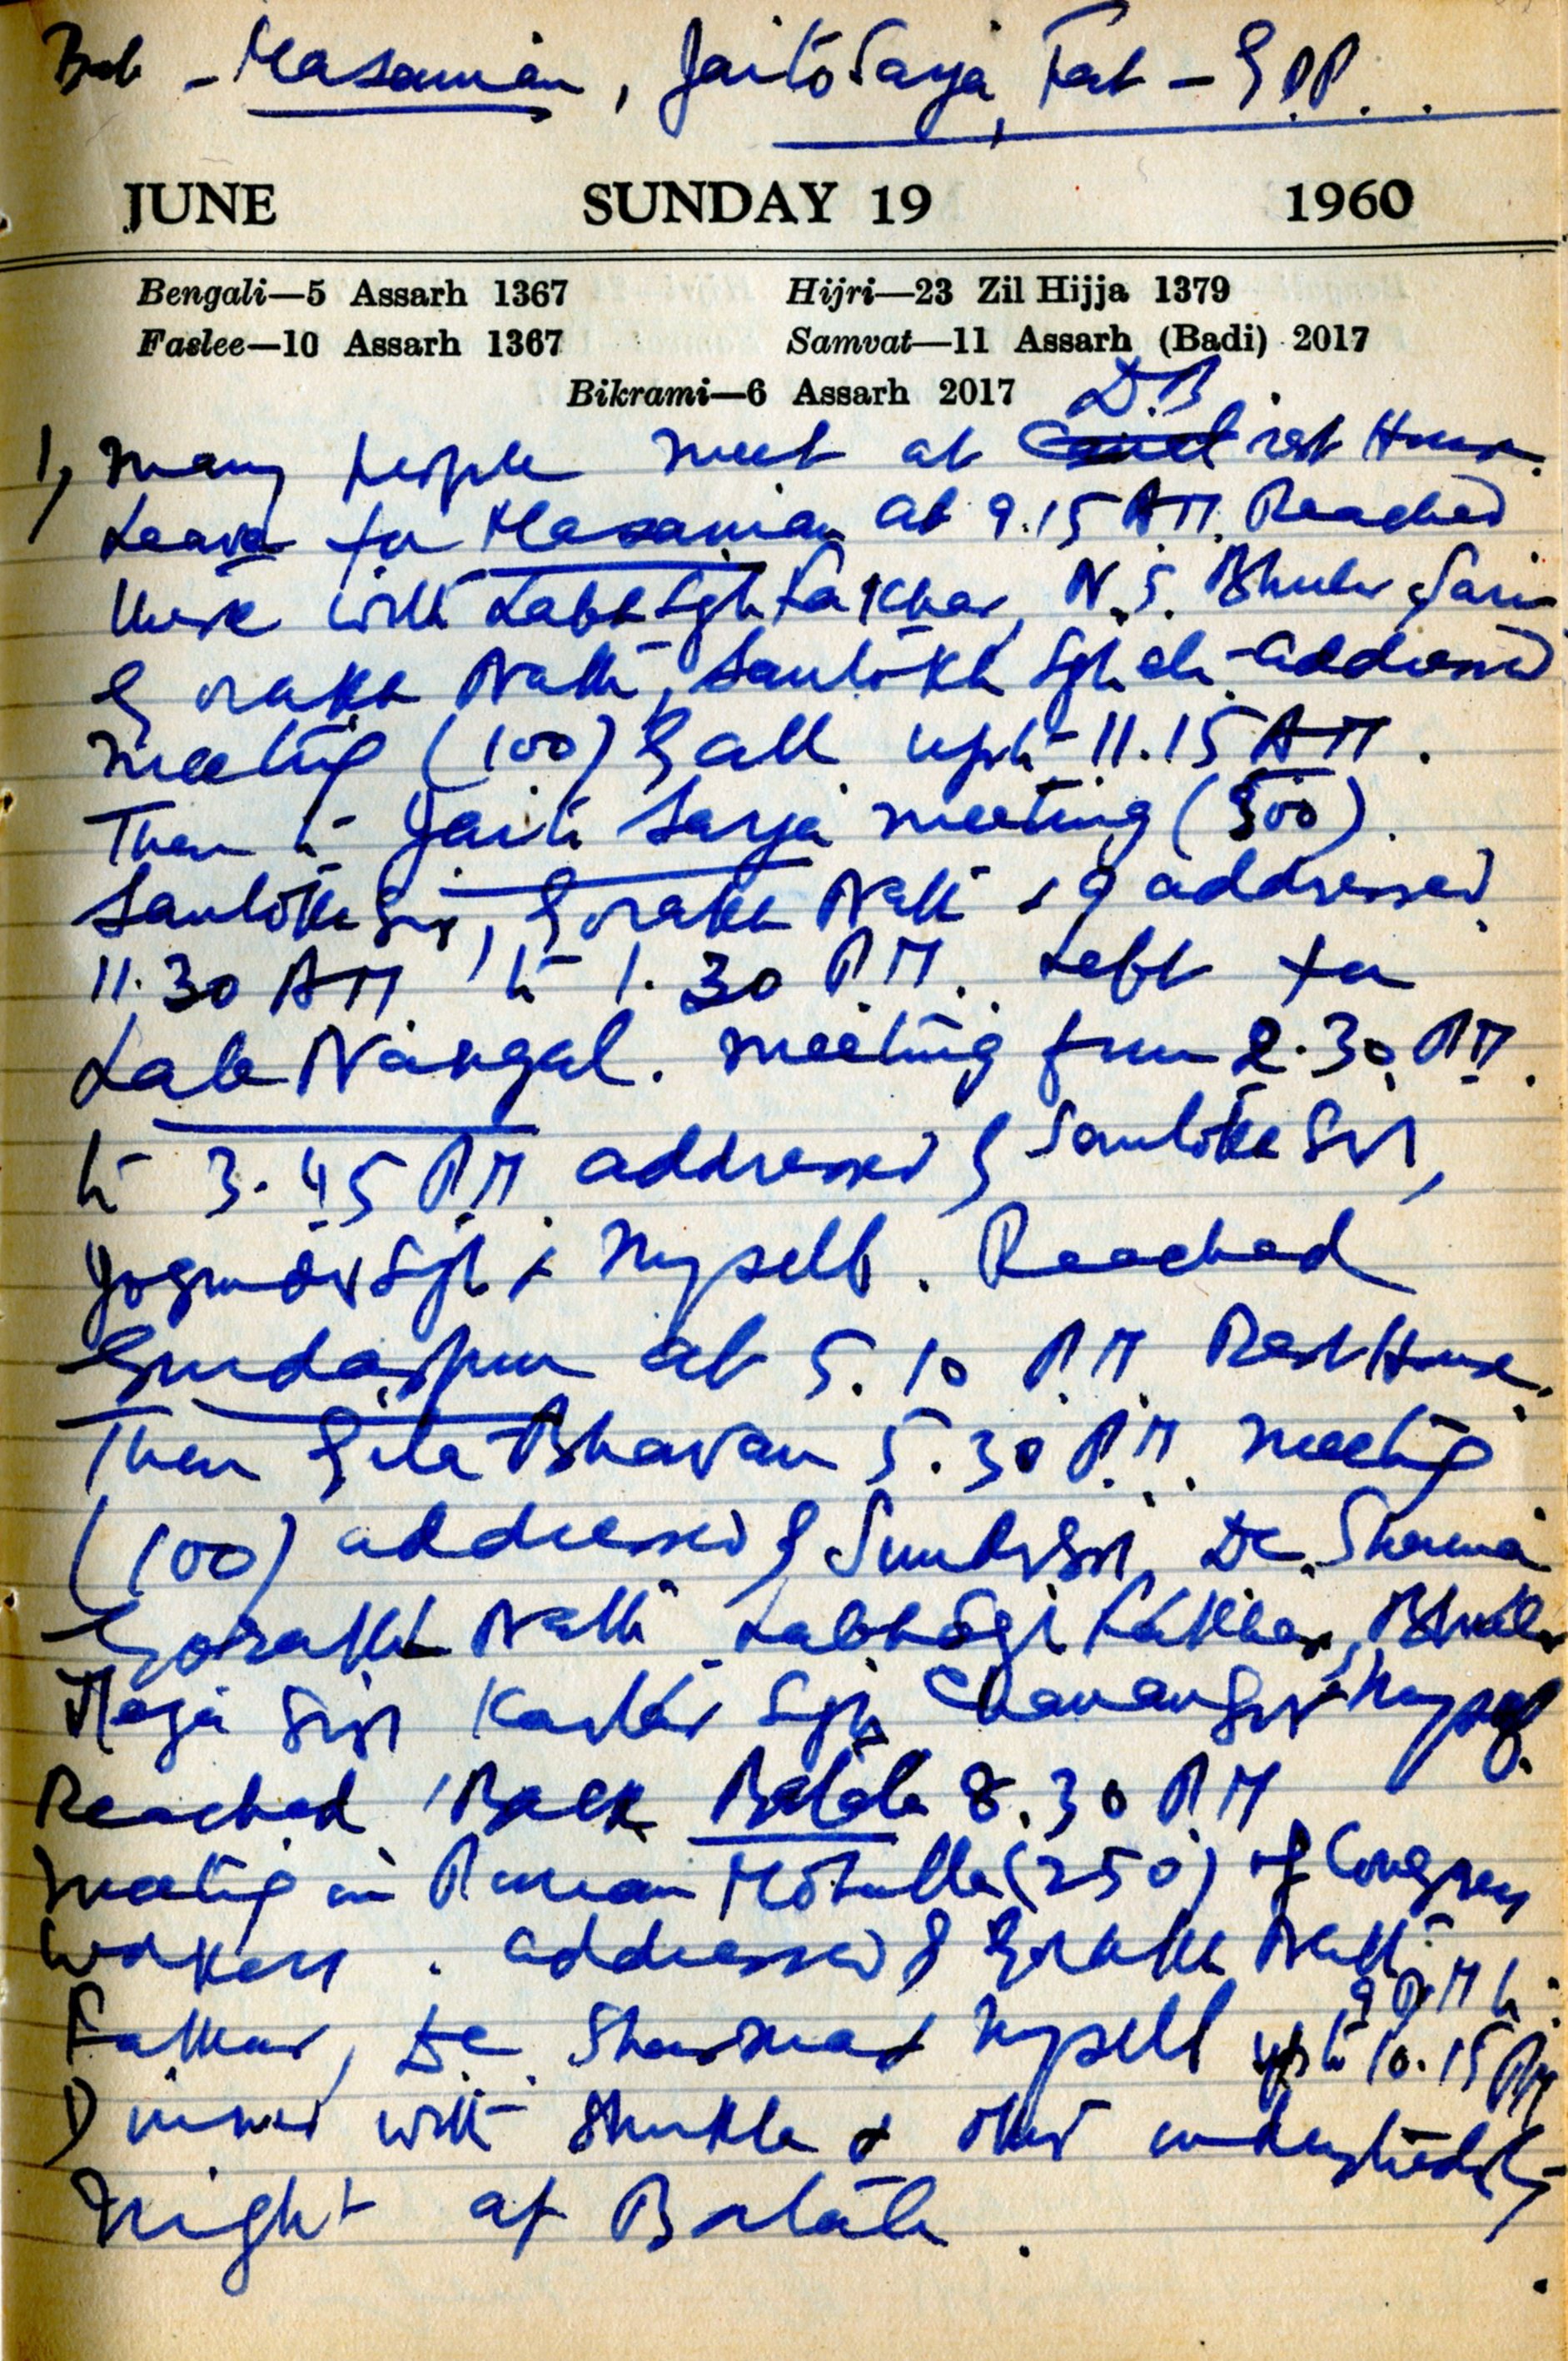 Btl - Masanian, Jaito Sarja, Fat - GDP..
JUNE SUNDAY 19 1960
Bengali—5 Assarh 1367 Hijri—23 Zil Hijja 1379
Faslee—10 Assarh 1367 Samvat—11 Assarh (Badi) 2017
Bikrami—6 Assarh 2017
D.B
1, many people meet at rest House.
Leave for Masanian at 9.15 AM. Reached
there with Labh Sgh Fakhar, N.S. Bhuler
Gorakh Nath, Santokh Sgh etc. addressed
meeting (100) & all upto 11.15 AM.
Then to Jaito Sarja meeting (500).
Santokh Sgh, Gorakh Nath & I addressed
11.30 AM to 1.30 P.M. Left for
Lale Nangal. meeting from 2.30 PM.
to 3.45 P.M. addressed by Santokh Sgh,
Joginder Sgh & Myself. Reached
Gurdaspur at 5.10 P.M. Rest House.
Then Gita Bhavan 5.30 P.M. meeting
(100) addressed by Sundr Sgh, Dr. Sharma
Gorakh Nath Labh Sgh Fakhar, Bhuler
Meja Sgh Kartar Sgh Chanan Sgh & Myself.
Reached Back Batala 8.30 P.M
meeting in Purian Mohalla (250) of Congress
workers. addressed by Gorakh Nath
9 P.M to
Fakhar, Dr. Sharma & Myself upto 10.15 PM
Dinner with Shukla & other industrialists
Night at Batala.